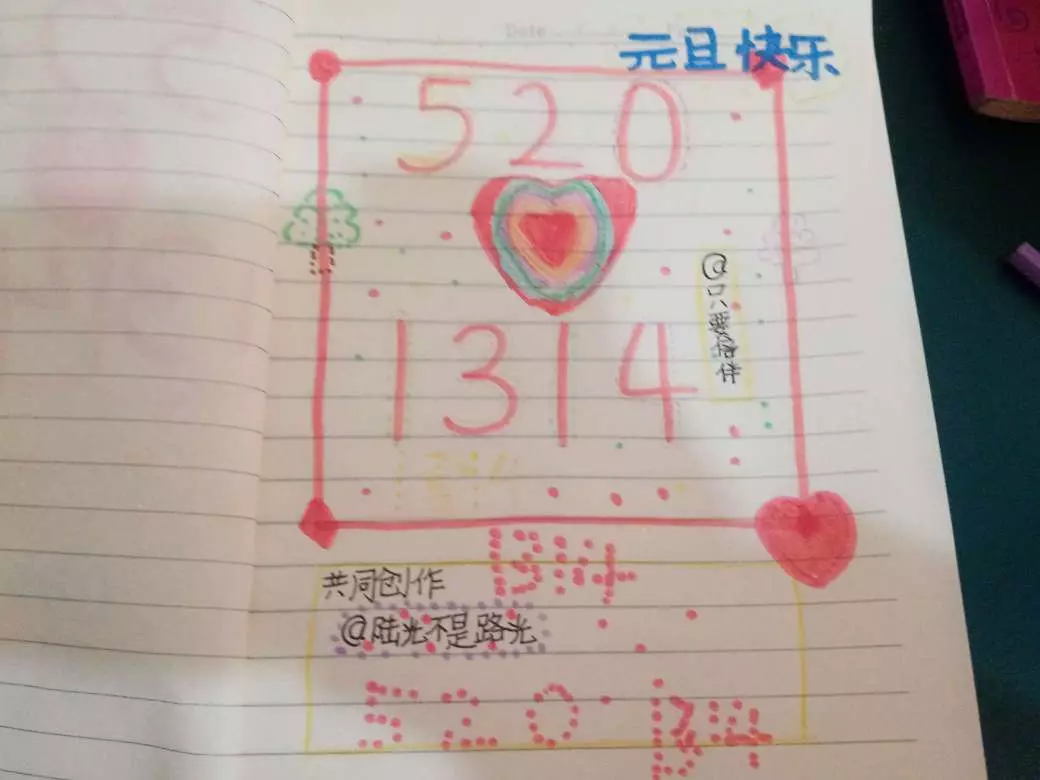 Date
元旦快乐
520
1314
@只要信佳
1314
共同创作
@陆光不是路光
520 1314